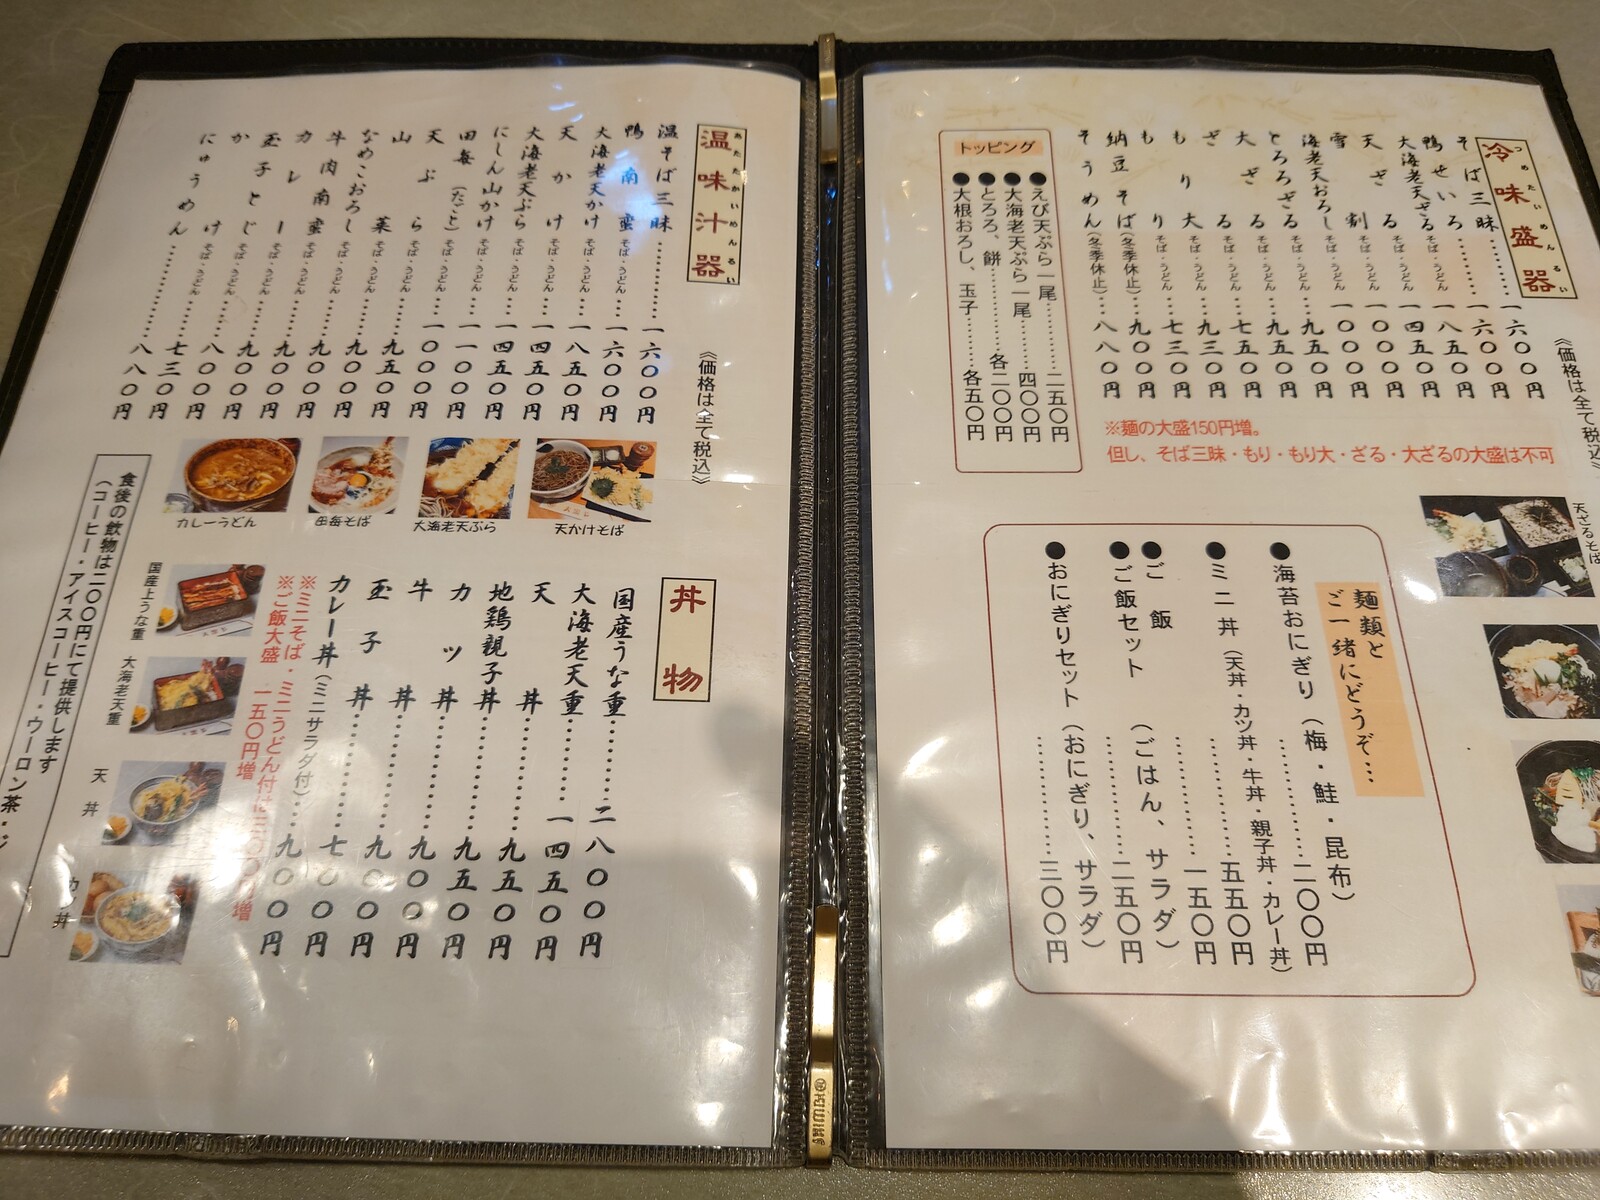 冷味盛器
つめたいめんるい
《価格は全て税込》
そば三昧…………一六〇〇円
鴨せいろ そば・うどん…一六〇〇円
大海老天ざる そば・うどん…一八五〇円
天ざる そば・うどん…一四五〇円
雪割 そば・うどん…一〇〇〇円
海老天おろし そば・うどん…一〇〇〇円
とろろざる そば・うどん…九五〇円
大ざる そば・うどん…九五〇円
ざる そば・うどん…七五〇円
もり大 そば・うどん…九三〇円
もり そば・うどん…七三〇円
納豆そば(冬季休止)…九〇〇円
そうめん(冬季休止)…八八〇円
トッピング
●えび天ぷら一尾………二五〇円
●大海老天ぷら一尾……四〇〇円
●とろろ、餅…………各二〇〇円
●大根おろし、玉子……各五〇円
※麺の大盛150円増。
但し、そば三昧・もり・もり大・ざる・大ざるの大盛は不可
天ざるそば
麺類と
ご一緒にどうぞ…
●海苔おにぎり(梅・鮭・昆布)
…………二〇〇円
●ミニ丼(天丼・カツ丼・牛丼・親子丼・カレー丼)
…………五五〇円
●ご飯…………一五〇円
●ご飯セット(ごはん、サラダ)
…………二五〇円
●おにぎりセット(おにぎり、サラダ)
…………三〇〇円
温味汁器
あたたかいめんるい
《価格は全て税込》
温そば三昧…………一六〇〇円
鴨南蛮 そば・うどん…一六〇〇円
大海老天かけ そば・うどん…一八五〇円
天かけ そば・うどん…一四五〇円
大海老天ぷら そば・うどん…一四五〇円
にしん山かけ そば・うどん…一一〇〇円
田毎(たごと) そば・うどん…一〇〇〇円
天ぷら そば・うどん…九五〇円
山菜 そば・うどん…九〇〇円
なめこおろし そば・うどん…九〇〇円
牛肉南蛮 そば・うどん…九〇〇円
カレー そば・うどん…九〇〇円
玉子とじ そば・うどん…八〇〇円
かけ そば・うどん…七三〇円
にゅうめん…………八八〇円
天かけそば
大海老天ぷら
田毎そば
カレーうどん
丼物
国産うな重………二八〇〇円
大海老天重………一四五〇円
天丼………九五〇円
地鶏親子丼………九五〇円
カツ丼………九〇〇円
牛丼………九〇〇円
玉子丼………七〇〇円
カレー丼(ミニサラダ付)…九〇〇円
※ミニそば・ミニうどん付は三〇〇円増
※ご飯大盛 一五〇円増
国産上うな重
大海老天重
天丼
カツ丼
食後の飲物は二〇〇円にて提供します
(コーヒー・アイスコーヒー・ウーロン茶・ジ